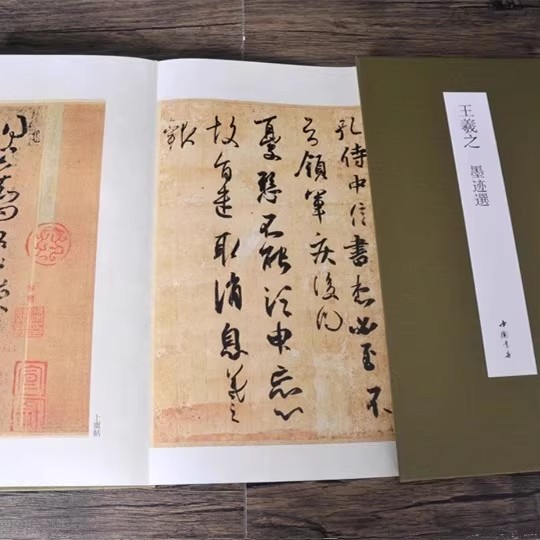 孔侍中信書想必至不
知領軍疾後問
憂懸不能須臾忘心
故旨遣取消息羲之
報
上虞帖
王羲之 墨迹選
中国书店